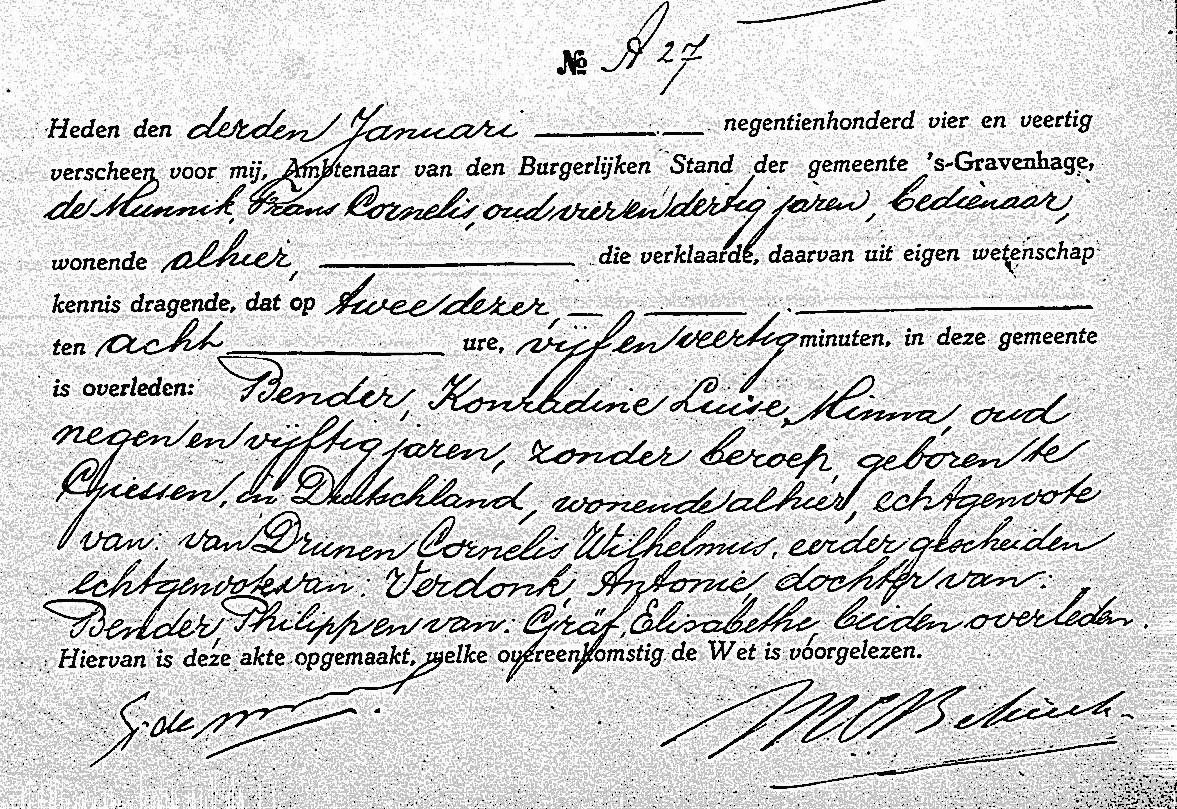 № A 27
Heden den derden Januari negentienhonderd vier en veertig
verscheen voor mij, Ambtenaar van den Burgerlijken Stand der gemeente 's-Gravenhage,
de Munnik, Frans Cornelis, oud vier en dertig jaren, bedienaar,
wonende alhier, die verklaarde, daarvan uit eigen wetenschap
kennis dragende, dat op twee dezer,
ten acht ure, vijf en veertig minuten, in deze gemeente
is overleden: Bender, Konradine Luise Minna, oud
negen en vijftig jaren, zonder beroep, geboren te
Giessen, in Duitschland, wonende alhier, echtgenoote
van: van Drunen Cornelis Wilhelmus, eerder gescheiden
echtgenoote van: Verdonk, Antonie, dochter van:
Bender, Philipp en van: Gräf, Elisabethe, beiden overleden.
Hiervan is deze akte opgemaakt, welke overeenkomstig de Wet is voorgelezen.